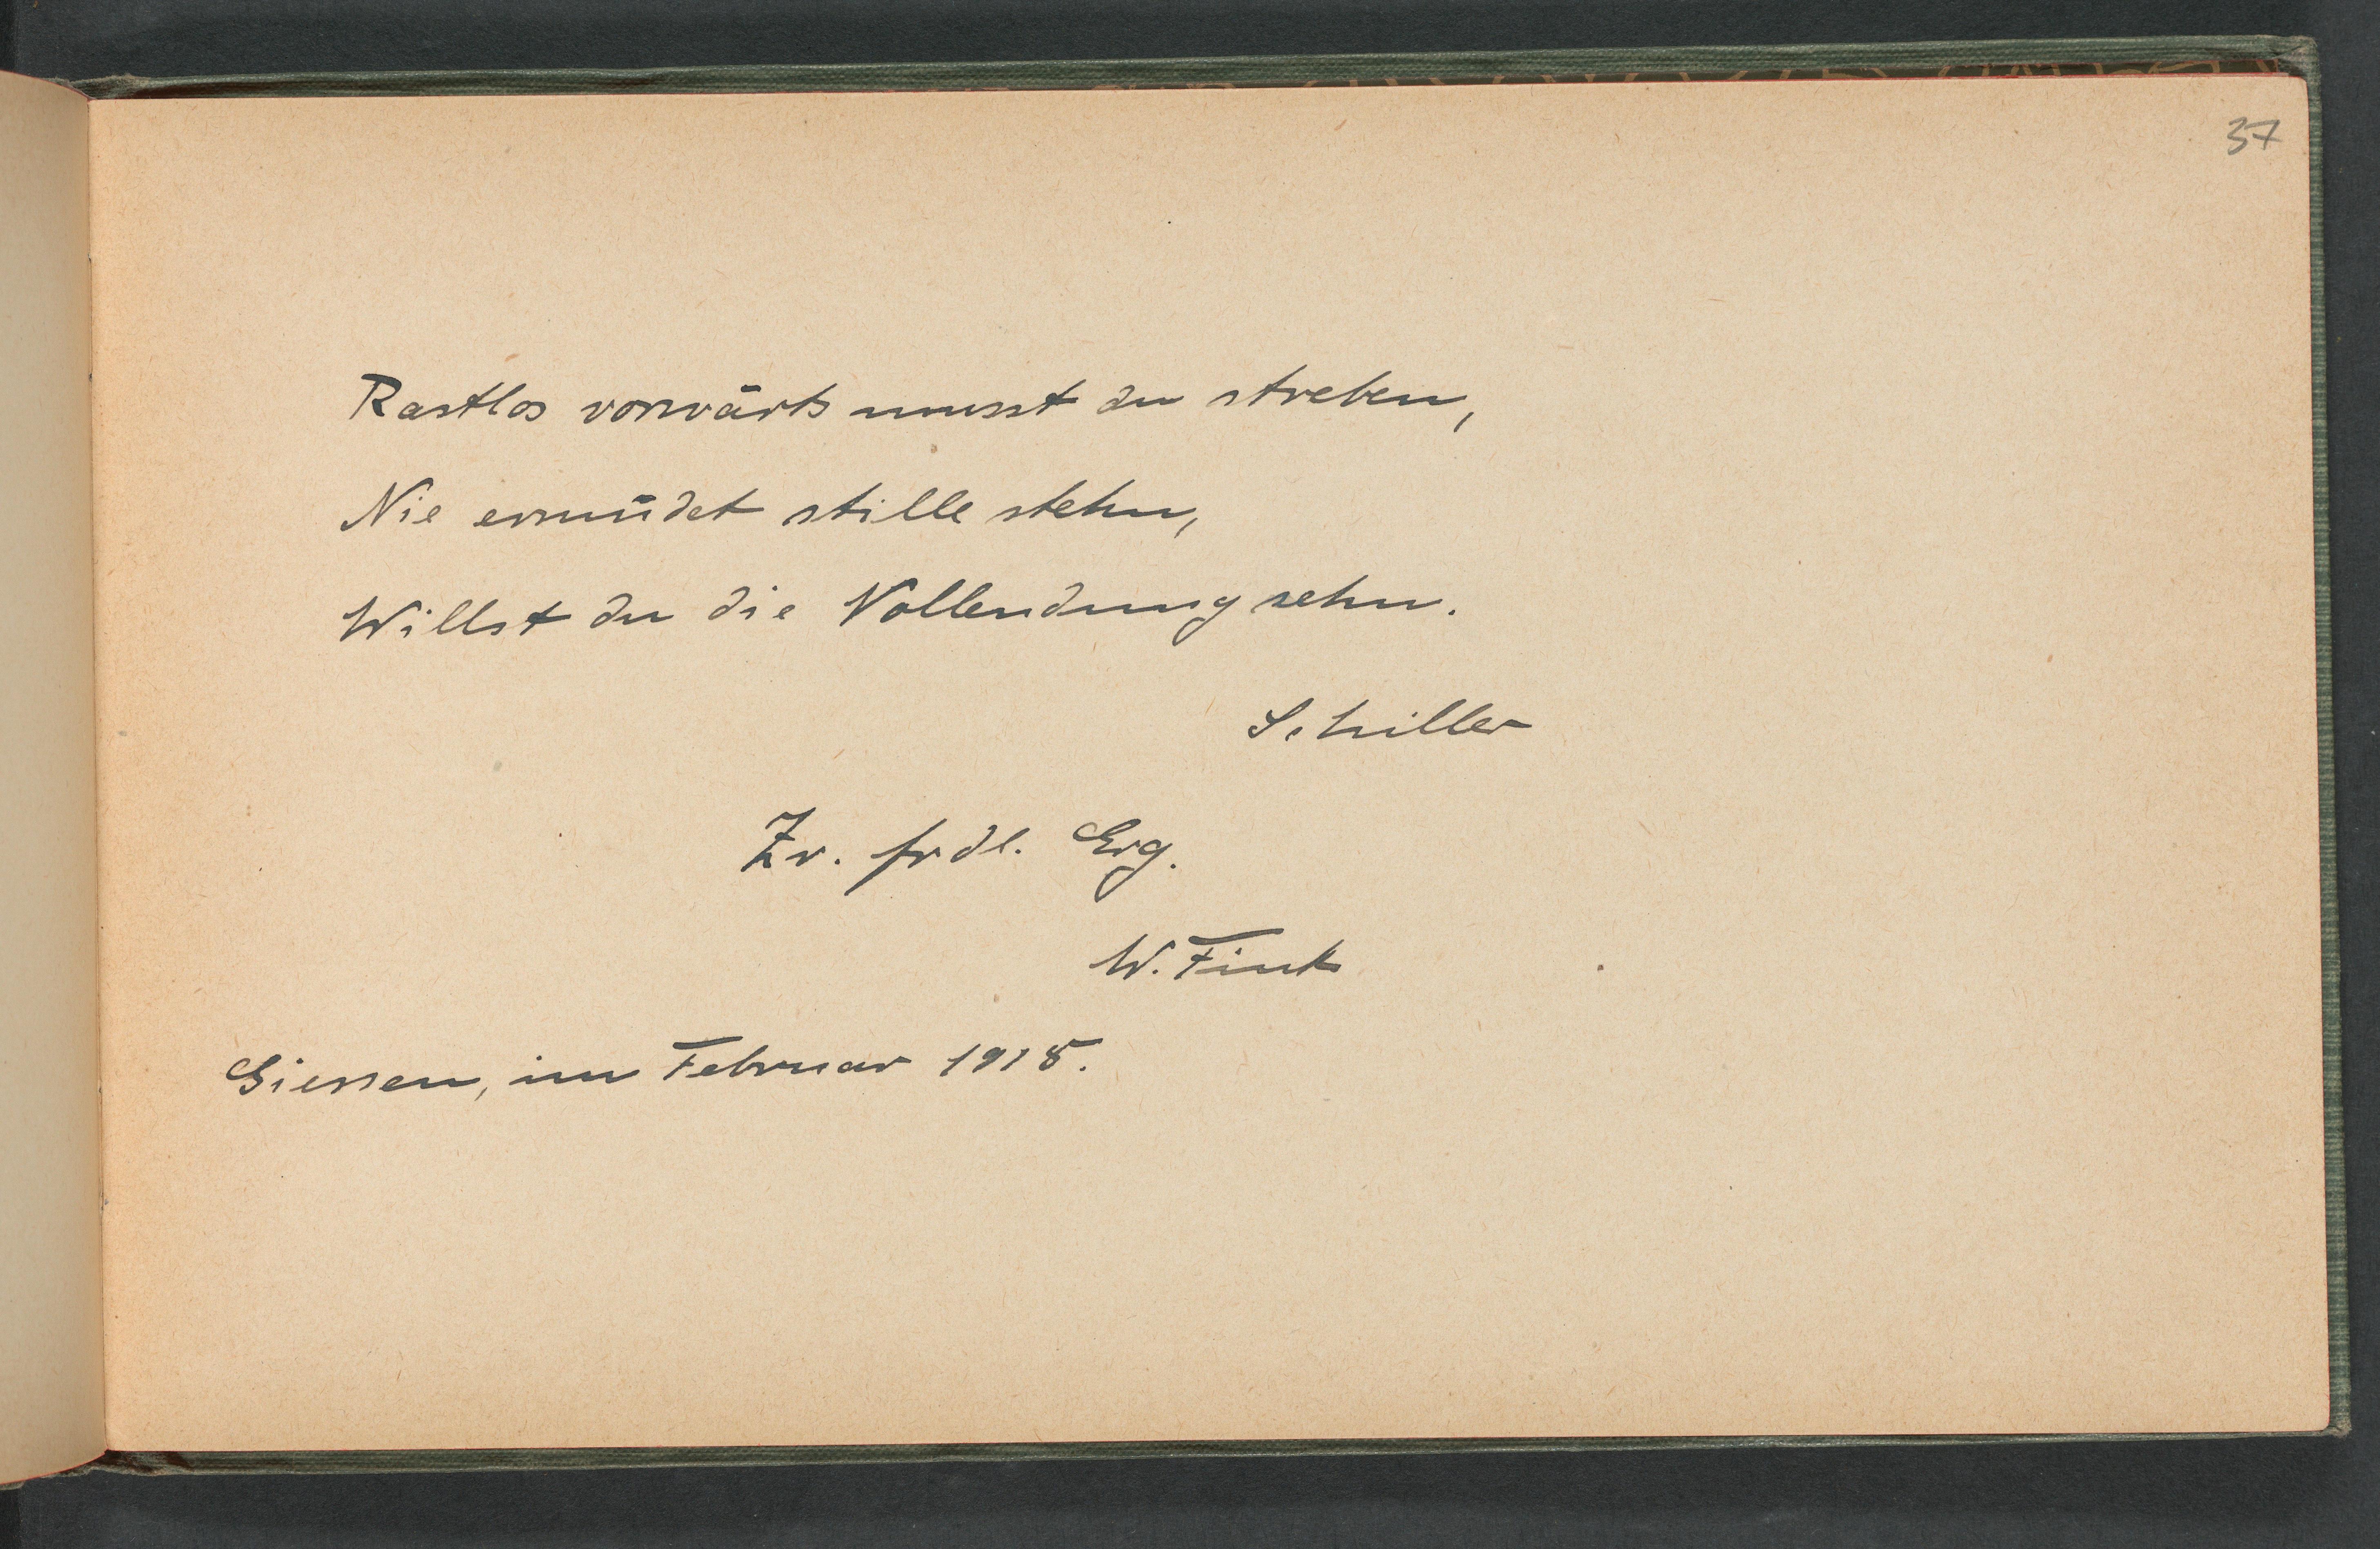 37
Rastlos vorwärts musst du streben,
Nie ermüdet stille stehn,
Willst du die Vollendung sehn.
Schiller
Zr. frdl. Erg.
W. Fink
Giessen, im Februar 1918.